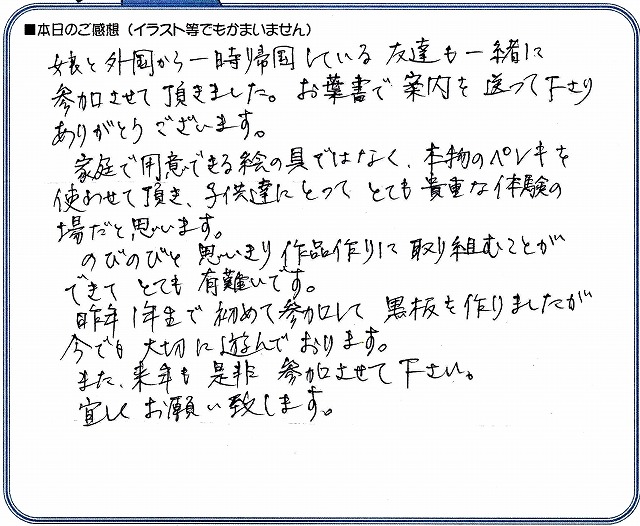 ■本日のご感想（イラスト等でもかまいません）
娘と外国から一時帰国している友達も一緒に
参加させて頂きました。お葉書で案内を送って下さり
ありがとうございます。
家庭で用意できる絵の具ではなく、本物のペンキを
使わせて頂き、子供達にとってとても貴重な体験の
場だと思います。
のびのびと思いきり作品作りに取り組むことが
できてとても有難いです。
昨年1年生で初めて参加して黒板を作りましたが
今でも大切に遊んでおります。
また、来年も是非参加させて下さい。
宜しくお願い致します。